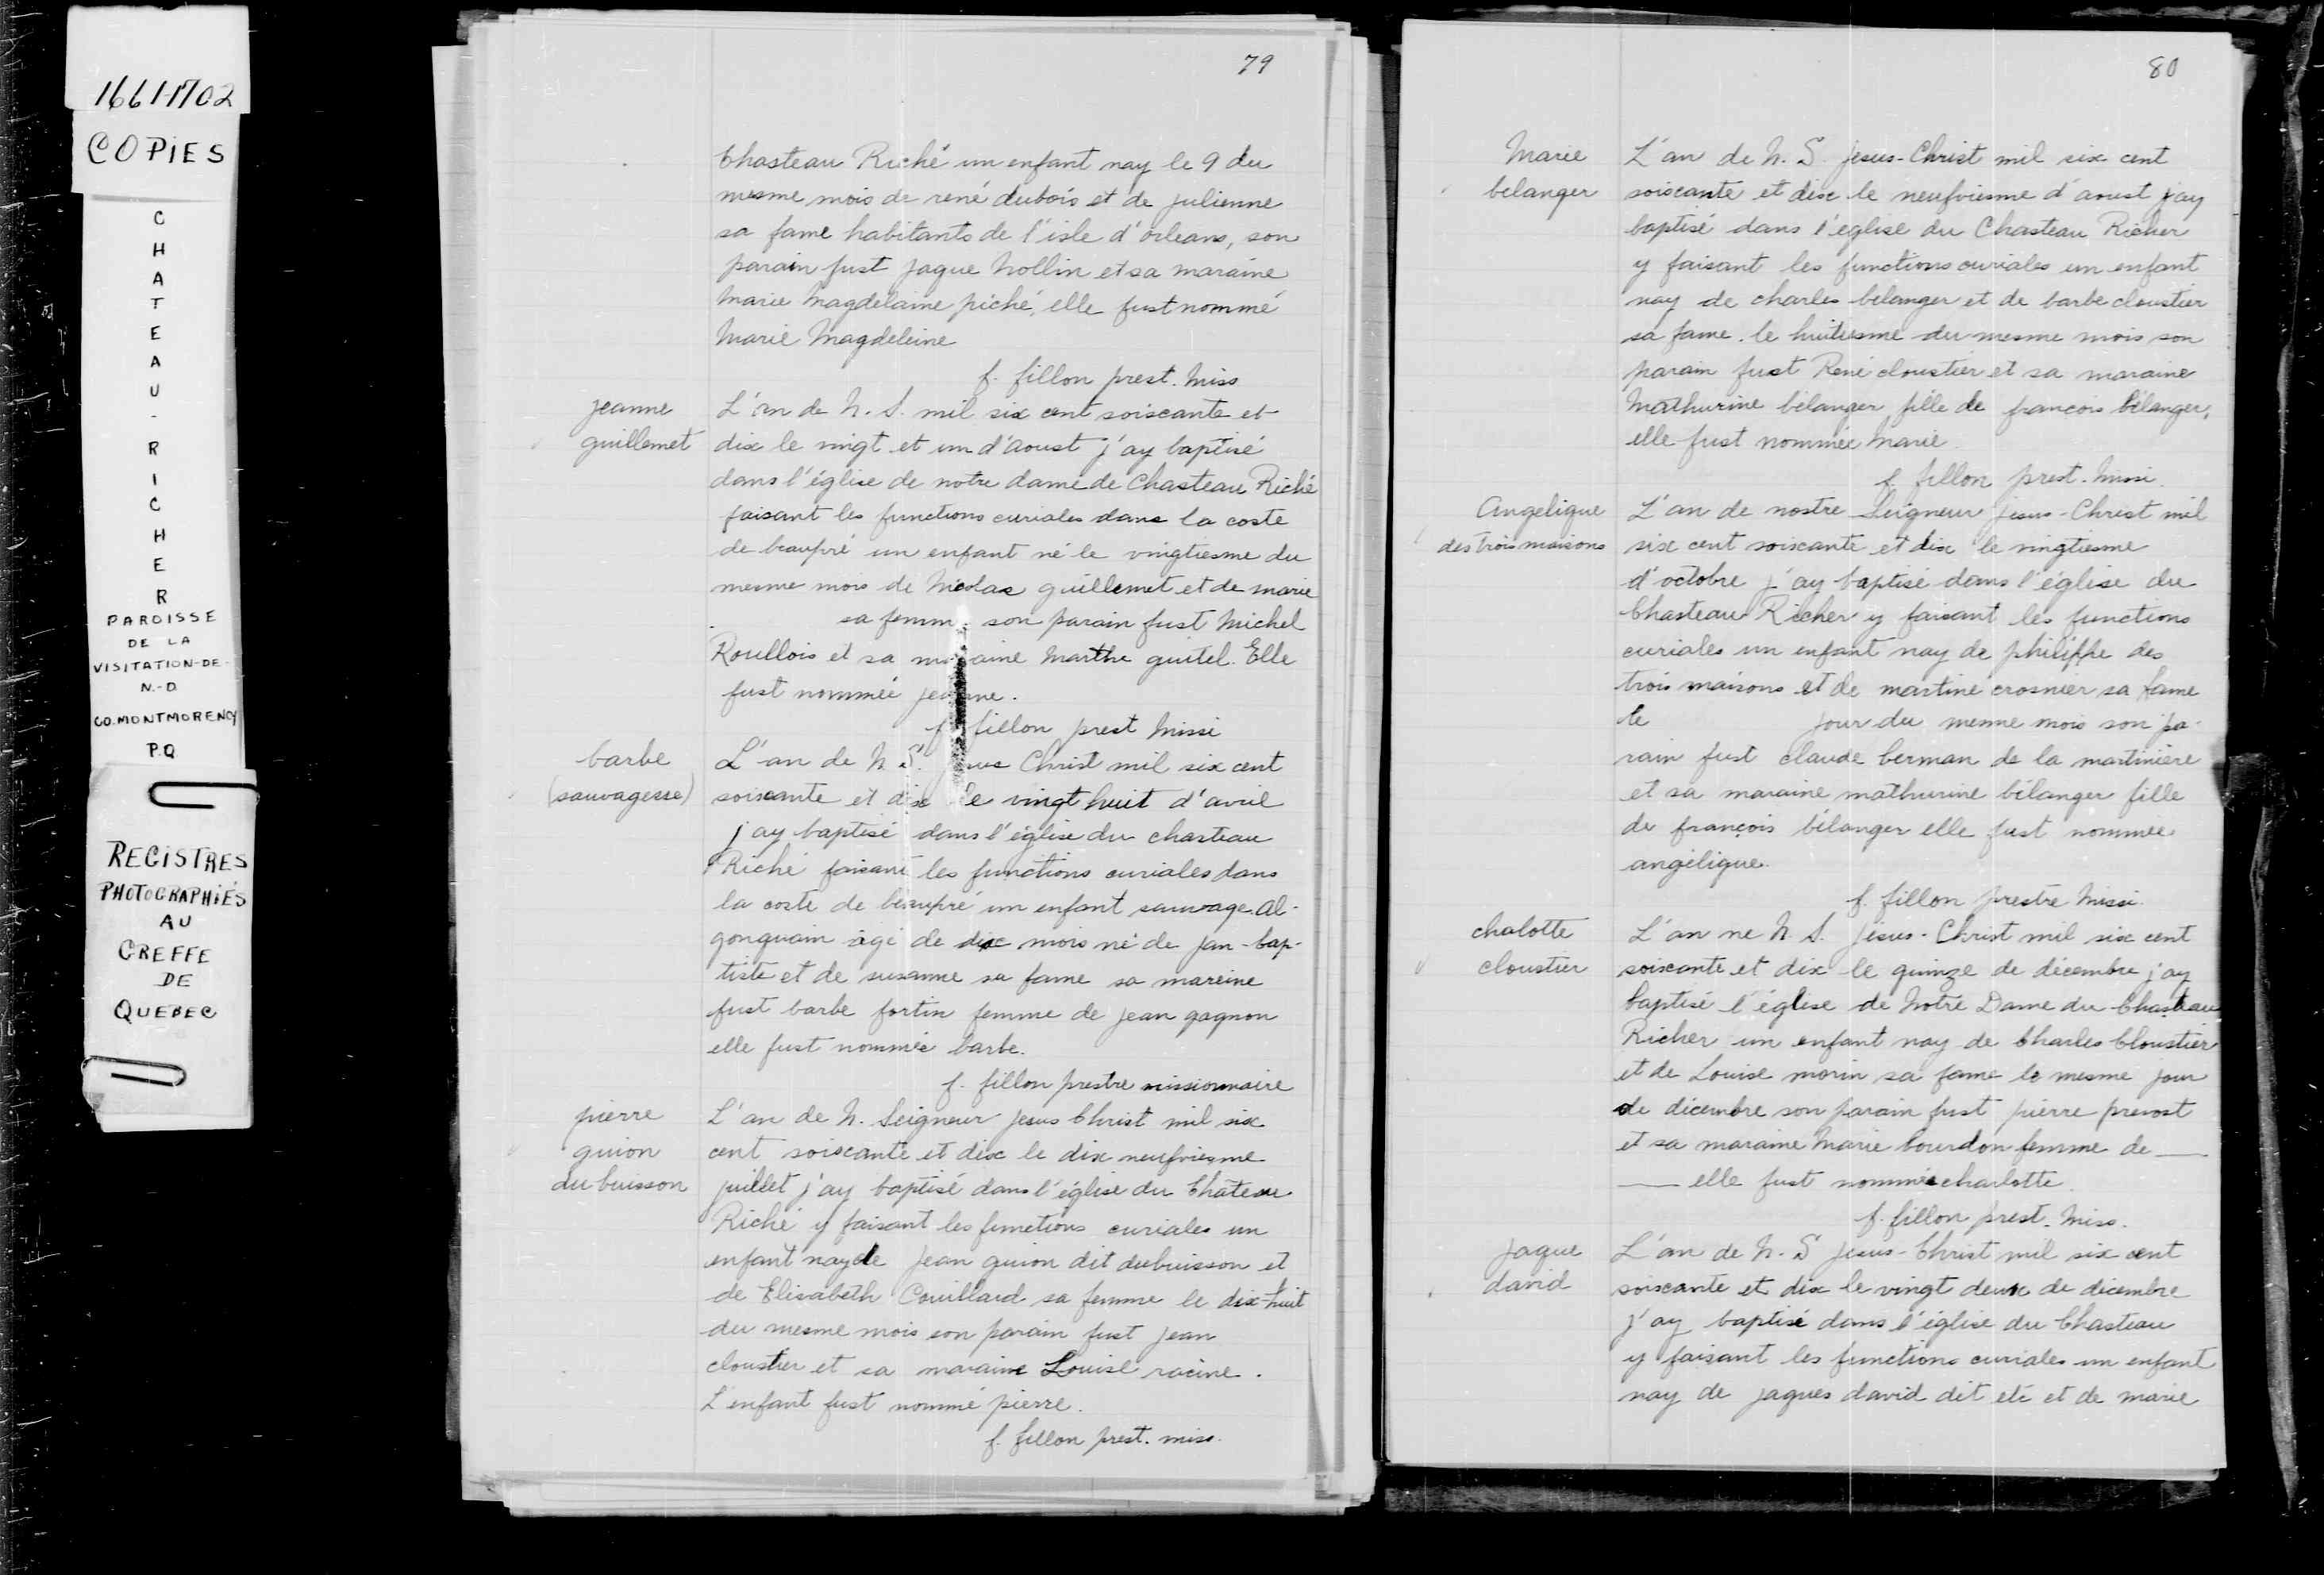 1661-1702
COPIES
CHATEAU-RICHER
PAROISSE
DE LA
VISITATION-DE-
N.-D.
CO. MONTMORENCY
P.Q
REGISTRES
PHOTOGRAPHIÉS
AU
GREFFE
DE
QUEBEC
79
Chasteau Riché un enfant nay le 9 du
mesme mois de rené dubois et de julienne
sa fame habitants de l'isle d'orleans, son
parain fust jaque Nollin et sa maraine
Marie Magdelaine piché, elle fust nommé
Marie Magdeleine
f. fillon prest. Miss
jeanne
guillemet
L'an de N. S. mil six cent soiscante et
dix le vingt et un d'aoust j'ay baptisé
dans l'église de notre dame de Chasteau Riché
faisant les functions curiales dans la coste
de beaupré un enfant né le vingtiesme du
mesme mois de Nicolas guillemet et de marie
sa femm. son parain fust Michel
Roullois et sa maraine Marthe guitel. Elle
fust nommée jeanne.
f. fillon prest Missi
barbe
(sauvagesse)
L'an de N. S. Christ mil six cent
soiscante et dix le vingt huit d'avril
j'ay baptisé dans l'église du chasteau
Riché faisant les functions curiales dans
la coste de beaupré un enfant sauvage. al-
gonquain âgé de dix mois né de jan-bap-
tiste et de susanne sa fame sa mareine
fust barbe fortin femme de jean gagnon
elle fust nommée barbe.
f. fillon prestre missionnaire
pierre
guion
du buisson
L'an de N. Seigneur jesus Christ mil six
cent soiscante et dix le dix neufviesme
juillet j'ay baptisé dans l'église du Chateau
Riché y faisant les functions curiales un
enfant nay de jean guion dit dubuisson et
de Elisabeth Couillard sa femme le dix-huit
du mesme mois son parain fust jean
cloustier et sa maraine Louise racine.
L'enfant fust nommé pierre.
f. fillon prest. miss.
80
Marie
belanger
L'an de N. S. jesus-Christ mil six cent
soiscante et dix le neufviesme d'aoust j'ay
baptisé dans l'église du Chasteau Richer
y faisant les functions curiales un enfant
nay de charles belanger et de barbe cloustier
sa fame. le huitiesme du mesme mois son
parain fust René cloustier et sa maraine
Mathurine bélanger fille de francois bélanger,
elle fust nommée Marie.
f. fillon prest. Missi.
Angelique
des trois maisons
L'an de nostre Seigneur jesus-Christ mil
six cent soiscante et dix le vingtiesme
d'octobre j'ay baptisé dans l'église du
Chasteau Richer y faisant les functions
curiales un enfant nay de philippe des
trois maisons et de martine crosnier sa fame
le jour du mesme mois son pa-
rain fust claude berman de la martinière
et sa maraine mathurine bélanger fille
de françois bélanger elle fust nommée
angélique.
f. fillon prestre Missi.
chalotte
cloustier
L'an ne N. S. Jésus-Christ mil six cent
soiscante et dix le quinze de décembre j'ay
baptisé l'église de Notre Dame du Chasteau
Richer un enfant nay de Charles Cloustier
et de Louise morin sa fame le mesme jour
de décembre son parain fust pierre prevost
et sa maraine Marie bourdon femme de ___
___ elle fust nommée charlotte.
f. fillon prest. Miss.
jaque
david
L'an de N. S jesus-Christ mil six cent
soiscante et dix le vingt deux de décembre
j'ay baptisé dans l'église du Chasteau
y faisant les functions curiales un enfant
nay de jaques david dit eté et de marie